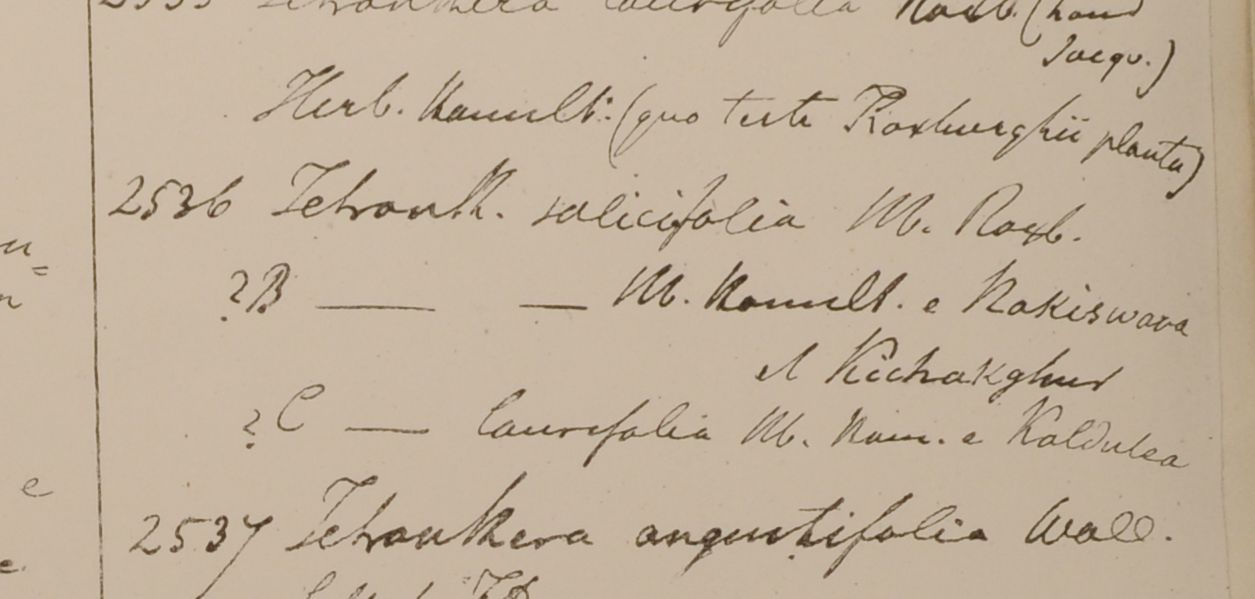 2535 Tetranthera laurifolia Roxb. (haud
Jacqu.)
Herb. Hamilt: (quo teste Roxburghii planta)
2536 Tetranth. salicifolia H. Roxb.
? B — — H. Hamilt. e Nakiswara
et Kichakghur
? C — laurifolia H. Ham. e Kalduka
2537 Tetranthera angustifolia Wall.